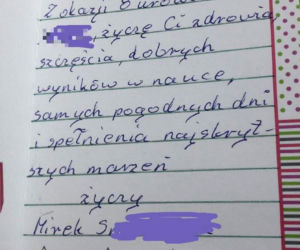 Z okazji Urodzin
, życzę Ci zdrowia,
szczęścia, dobrych
wyników w nauce,
samych pogodnych dni
i spełnienia najskryt-
szych marzeń
życzy
Mirek